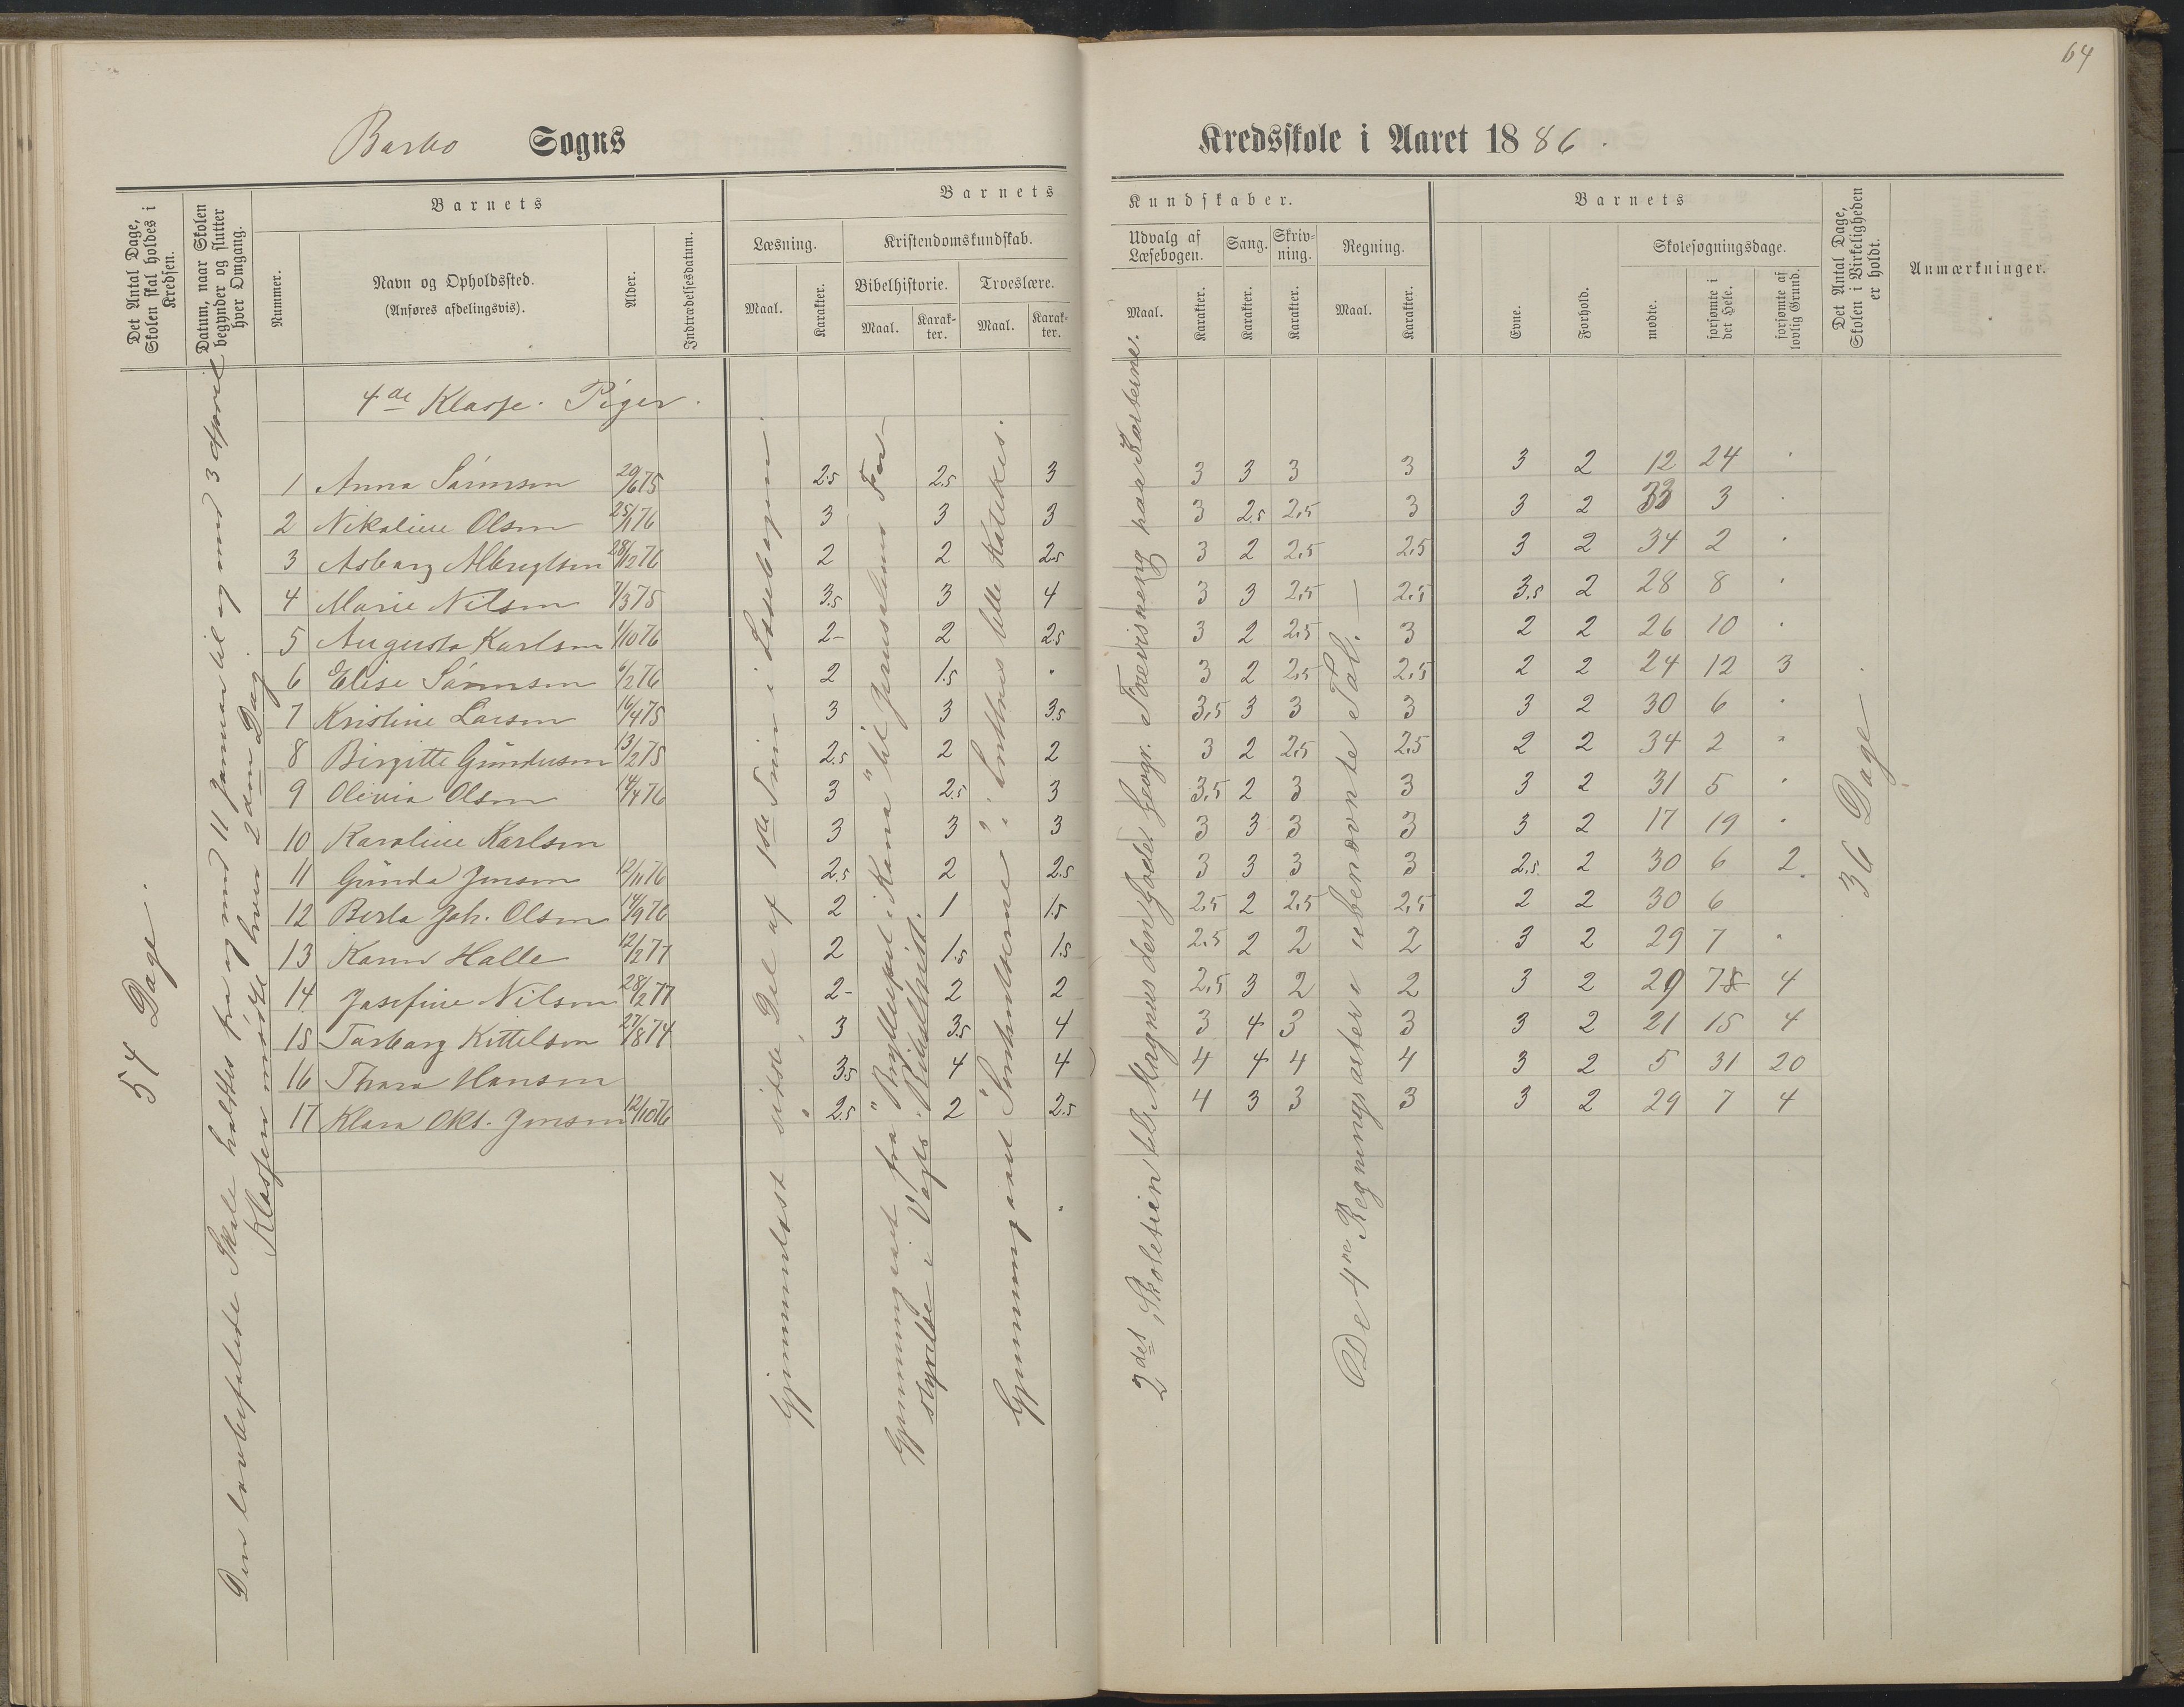 64
Barbo Sogns
Kredsskole i Aaret 1886.
Det Antal Dage, Skolen skal holdes i Kredsen.
Datum, naar Skolen begynder og slutter hver Omgang.
Barnets
Nummer.
Navn og Opholdssted.
(Anføres afdelingsvis).
Alder.
Indtrædelsesdatum.
Barnets
Læsning.
Maal.
Karakter.
Kristendomskundskab.
Bibelhistorie.
Maal.
Karakter.
Troeslære.
Maal.
Karakter.
Kundskaber.
Udvalg af Læsebogen.
Maal.
Karakter.
Sang.
Karakter.
Skrivning.
Karakter.
Regning.
Maal.
Karakter.
Barnets
Evne.
Forhold.
Skolesøgningsdage.
mødte.
forsømte i det Hele.
forsømte af lovlig Grund.
Det Antal Dage, Skolen i Virkeligheden er holdt.
Anmærkninger.
4de Klasse. Piger.
1 Anna Sörensen 20/6 75 2.5 2.5 3 3 3 3 3 3 2 12 24
2 Nikoline Olsen 25/1 76 3 3 3 3 2.5 2,5 3 3 2 33 3
3 Asborg 28/12 76 2 2 2.5 3 2 2,5 2,5 3 2 34 2
4 Marie Nilsen 7/3 75 3.5 3 4 3 3 2,5 2,5 3.5 2 28 8
5 Augusta Karlsen 1/10 76 2- 2 2.5 3 2 2,5 3 2 2 26 10
6 Elise Sörensen 6/2 76 2 1.5 3 2 2,5 2,5 2 2 24 12 3
7 Kristine Larsen 16/4 75 3 3 3.5 3,5 3 3 3 3 2 30 6
8 Birgitte Gundersen 13/2 75 2.5 2 2 3 2 2,5 2,5 2 2 34 2
9 Olivia Olsen 14/4 76 3 2.5 3 3,5 2 3 3 3 2 31 5
10 Karoline Karlsen 3 3 3 3 3 3 3 3 2 17 19
11 Gunda Jensen 12/11 76 2.5 2 2.5 3 3 3 3 2.5 2 30 6 2
12 Berta Joh. Olsen 14/9 76 2 1 1.5 2,5 2 2,5 2,5 2 2 30 6
13 Karen Halle 12/2 77 2 1.5 1.5 2,5 2 2 2 3 2 29 7
14 Josefine Nilsen 28/2 77 2- 2 2 2,5 3 2 2 3 2 29 7 4
15 Torborg Kittelsen 27/8 74 3 3.5 4 3 4 3 3 3 2 21 15 4
16 Thora Hansen 3.5 4 4 4 4 4 4 3 2 5 31 20
17 Klara Okt. Jensen 12/10 76 2.5 2 2.5 4 3 3 3 3 2 29 7 4
54 Dage.
Den lovbefalede Skole holdtes fra og med 11 Januar til og med 3 April
Klassen mødte hver 2den Dag.
Gjennemlæst sidste Del af 1ste Trin i Læsebogen.
Gjennemgaaet fra "Brylluppet i Kana" til Jerusalems For-
styrelse i Vogts Bibelhist.
Gjennemgaaet i Luthers lille Katekis.
2det Skoletrin Magnus den Gode. Geogr. Forevisning paa Karterne.
De 4re Regningsarter i ubenævnte Tal.
36 Dage